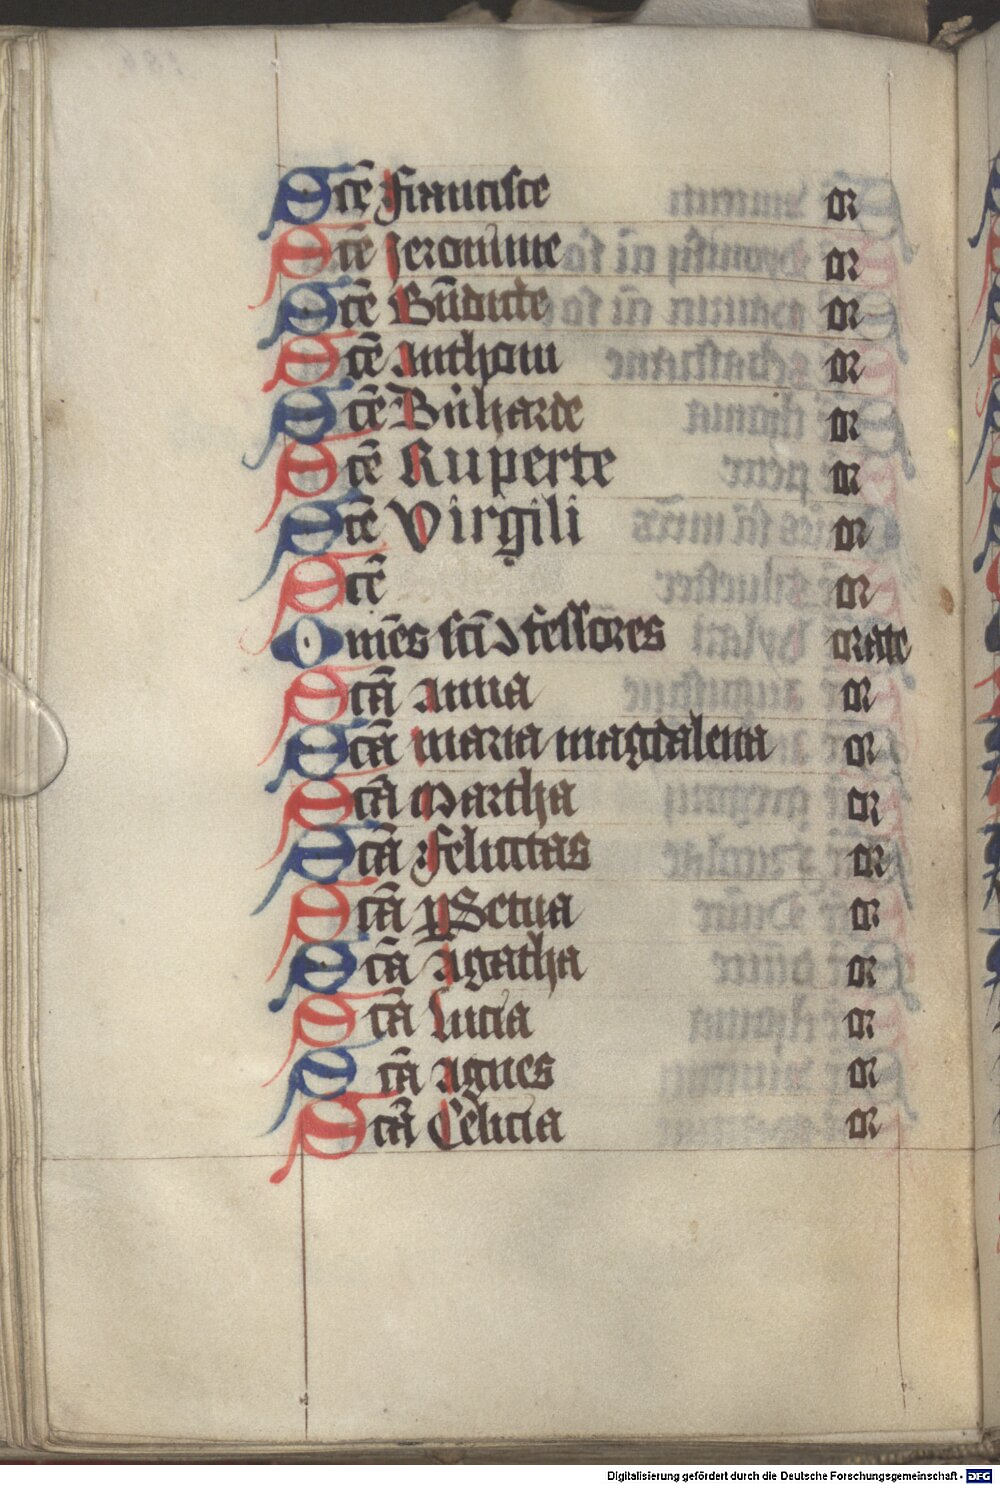 Scē francisce or
Scē Jeronime or
Scē Bn̄dicte or
Scē Anthoni or
Scē Bn̄harde or
Scē Ruperte or
Scē Virgili or
Scē or
Om̄es sc̄i ꝯfessores orate
Scā Anna or
Scā maria magdalena or
Scā Martha or
Scā felicitas or
Scā ꝑpetua or
Scā Agatha or
Scā Lucia or
Scā Agnes or
Scā Cecilia or
Digitalisierung gefördert durch die Deutsche Forschungsgemeinschaft - DFG